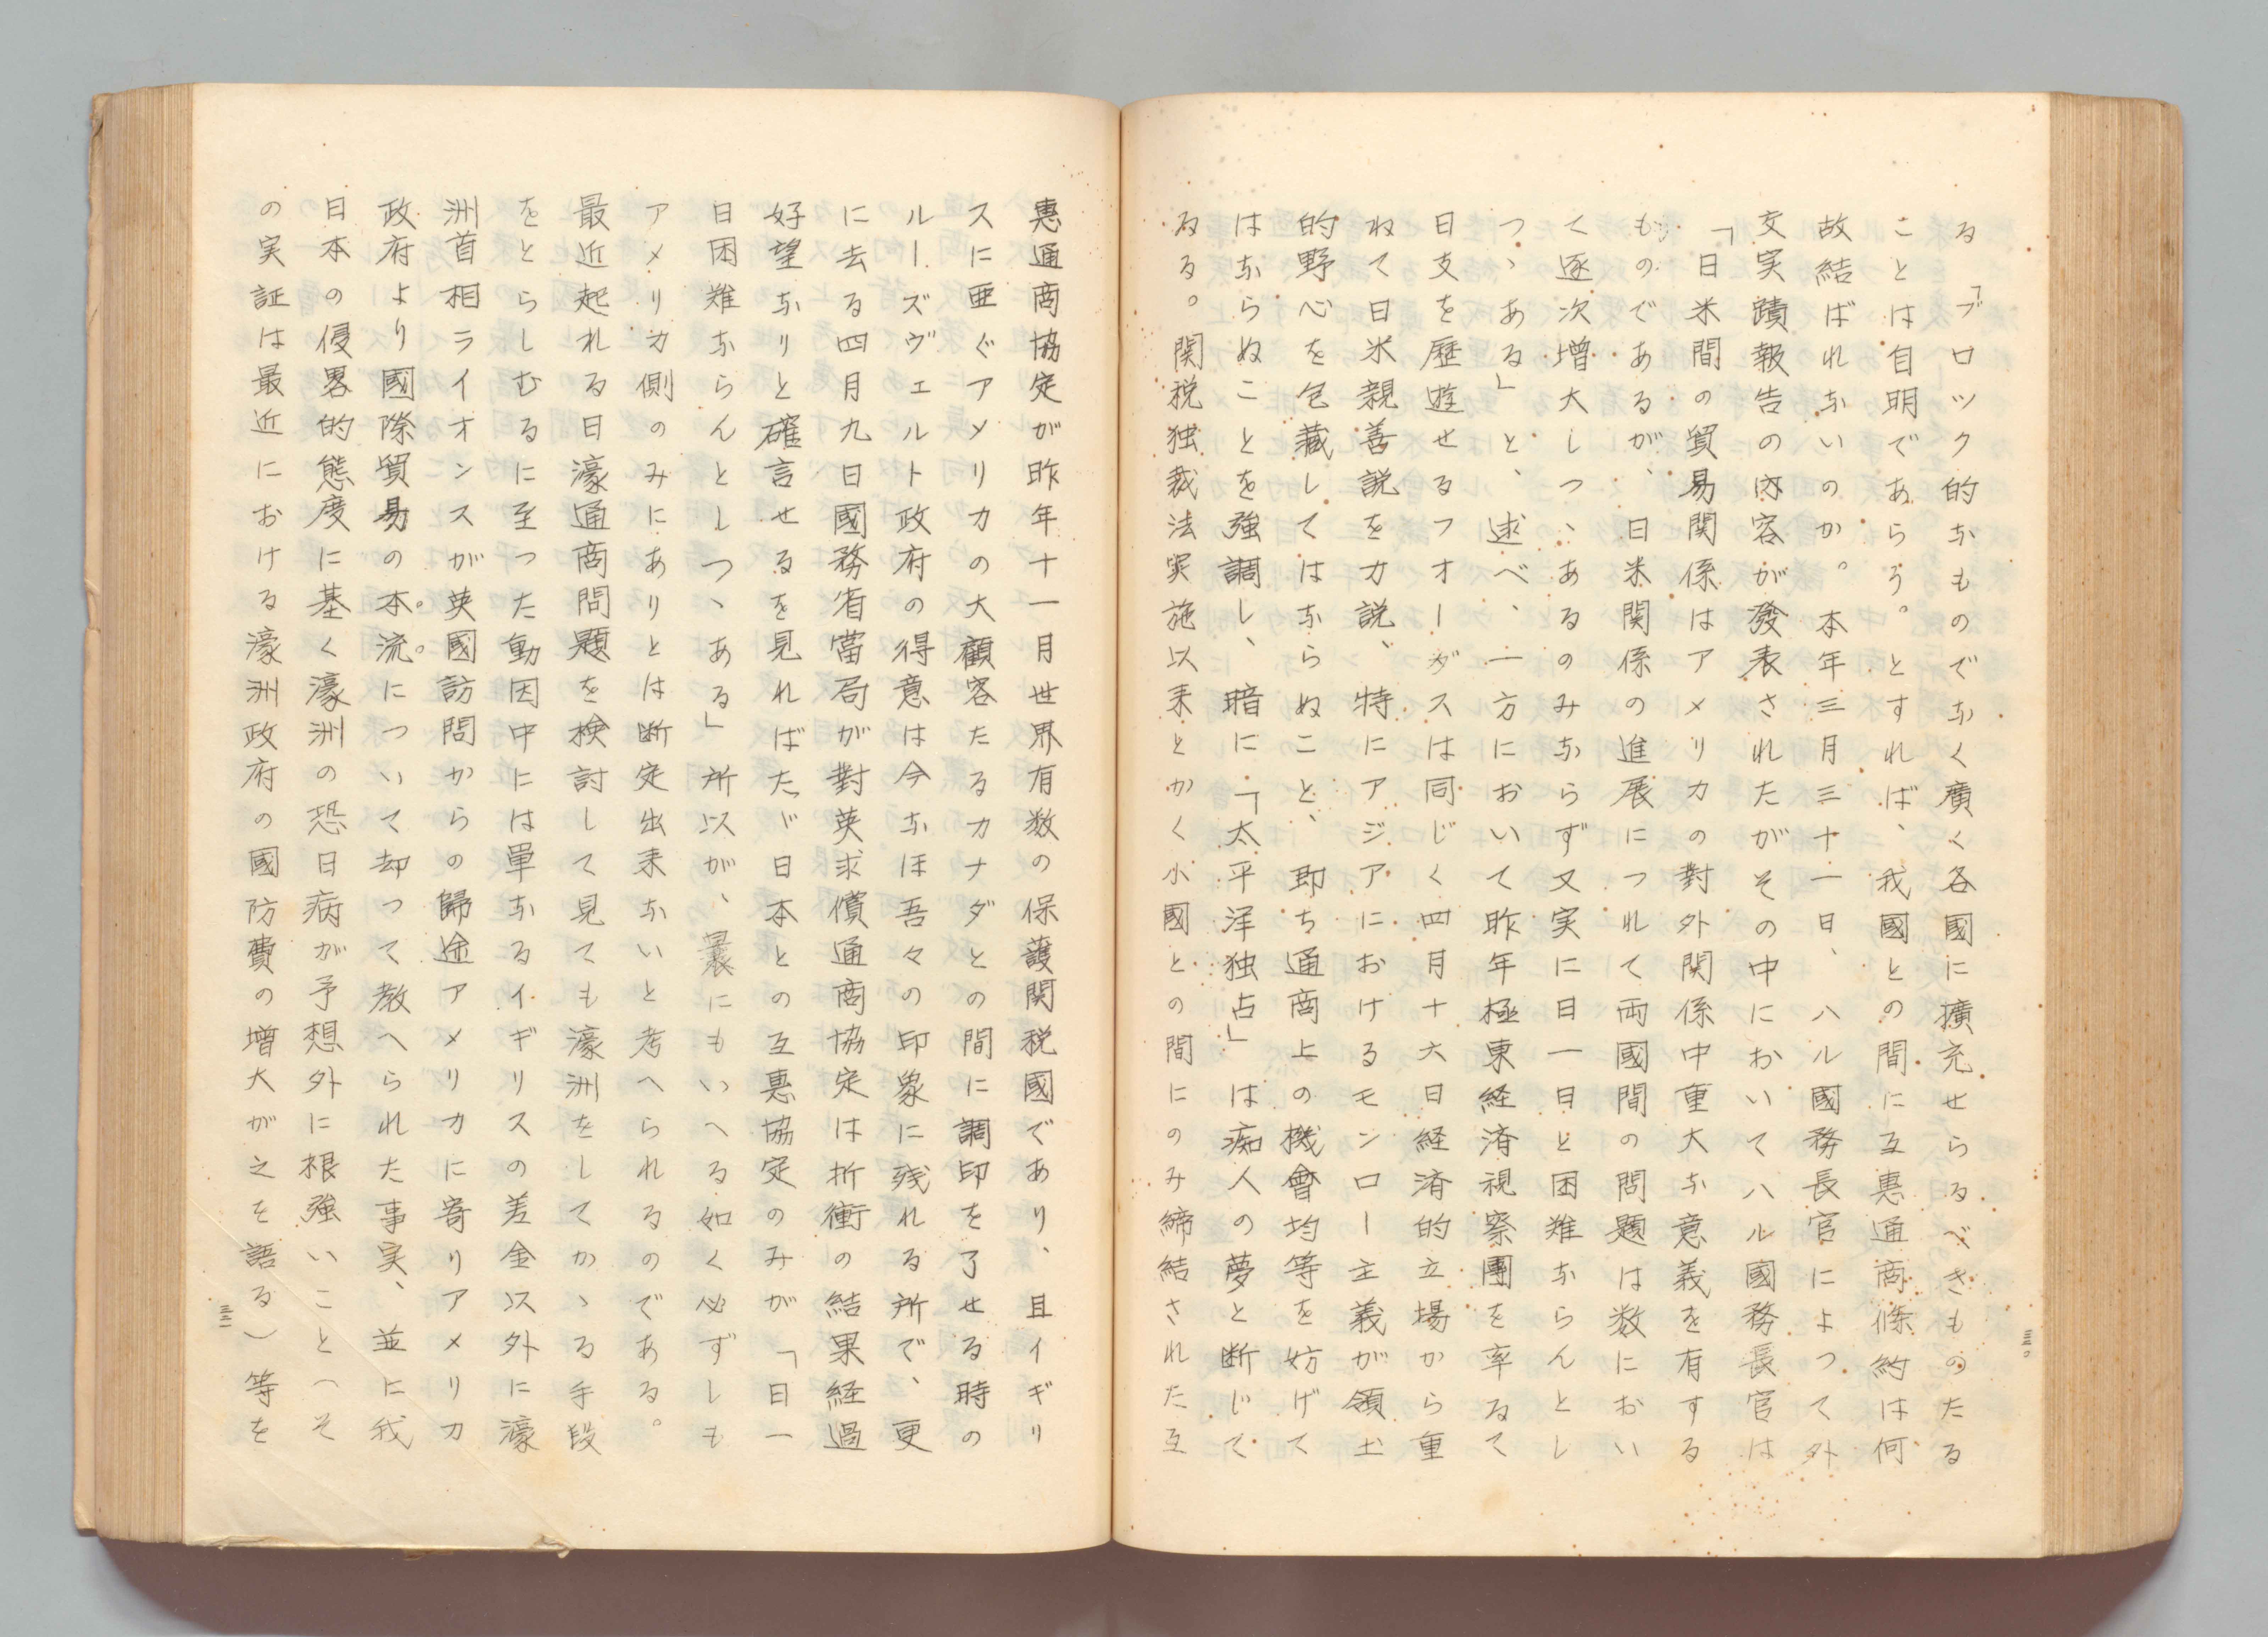 る「ブロック的なものでなく廣く各國に擴充せらるべきものたる
ことは自明であらう。とすれば、我國との間に互惠通商條約は何
故結ばれないのか。本年三月三十一日、ハル國務長官によつて外
交実蹟報告の内容が發表されたがその中においてハル國務長官は
「日米間の貿易関係はアメリカの對外関係中重大な意義を有する
ものであるが、日米関係の進展につれて両國間の問題は数におい
て逐次増大しつゝあるのみならず又実に日一日と困難ならんとし
つゝある」と、述べ、一方において昨年極東経済視察團を率ゐて
日支を歴遊せるフオーダスは同じく四月十六日経済的立場から重
ねて日米親善説を力説、特にアジアにおけるモンロー主義が領土
的野心を包藏してはならぬこと、即ち通商上の機會均等を妨げて
はならぬことを強調し、暗に「太平洋独占」は痴人の夢と断じて
ゐる。関税独裁法実施以来とかく小國との間にのみ締結された互
三三〇
惠通商協定が昨年十一月世界有数の保護関税國であり、且イギリ
スに亜ぐアメリカの大顧客たるカナダとの間に調印を了せる時の
ルーズヴェルト政府の得意は今なほ吾々の印象に残れる所で、更
に去る四月九日國務省當局が對英求償通商協定は折衝の結果経過
好望なりと確言せるを見ればたゞ日本との互惠協定のみが「日一
日困難ならんとしつゝある」所以が、曩にもいへる如く必ずしも
アメリカ側のみにありとは断定出来ないと考へられるのである。
最近起れる日濠通商問題を検討して見ても濠洲をしてかゝる手段
をとらしむるに至つた動因中には單なるイギリスの差金以外に濠
洲首相ライオンスが英國訪問からの歸途アメリカに寄りアメリカ
政府より國際貿易の本。流。について却つて教へられた事実、並に我
日本の侵畧的態度に基く濠洲の恐日病が予想外に根強いこと（そ
の実証は最近における濠洲政府の國防費の増大が之を語る）等を
三三一